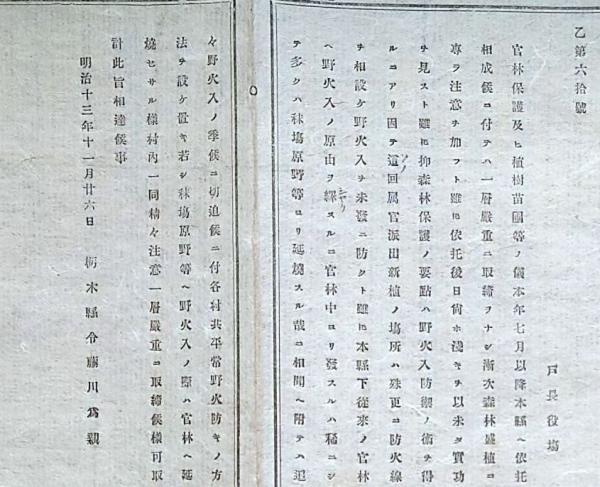 乙第六拾號
戸長役塲
官林保護及ヒ植樹苗圃等ノ儀本年七月以降本縣ヘ依托
相成候ニ付テハ一層嚴重ニ取締ヲナシ漸次森林盛植ニ
專ラ注意ヲ加フト雖𪜈依托後日尚ホ淺キヲ以未タ實功
ヲ見スト雖𪜈抑森林保護ノ要點ハ野火入防禦ノ術ヲ得
ルニアリ因テ這回属官派出新植ノ塲所ハ殊更ニ防火線
ヲ相設ケ野火入ヲ未發ニ防クト雖𪜈本縣下従来ノ官林
ヘ野火入ノ原由ヲ繹スルニ官林中ヨリ發スルハ稀ニシ
テ多クハ秣塲原野等ヨリ延燒スル哉ニ相聞ヘ附テハ追
々野火入ノ季候ニ切迫候ニ付各村共平常野火防キノ方
法ヲ設ケ置キ若シ秣塲原野等ヘ野火入ノ際ハ官林ヘ延
燒セサル樣村内一同精々注意一層嚴重ニ取締候樣可取
計此旨相達候事
明治十三年十一月廿六日　栃木縣令藤川爲親